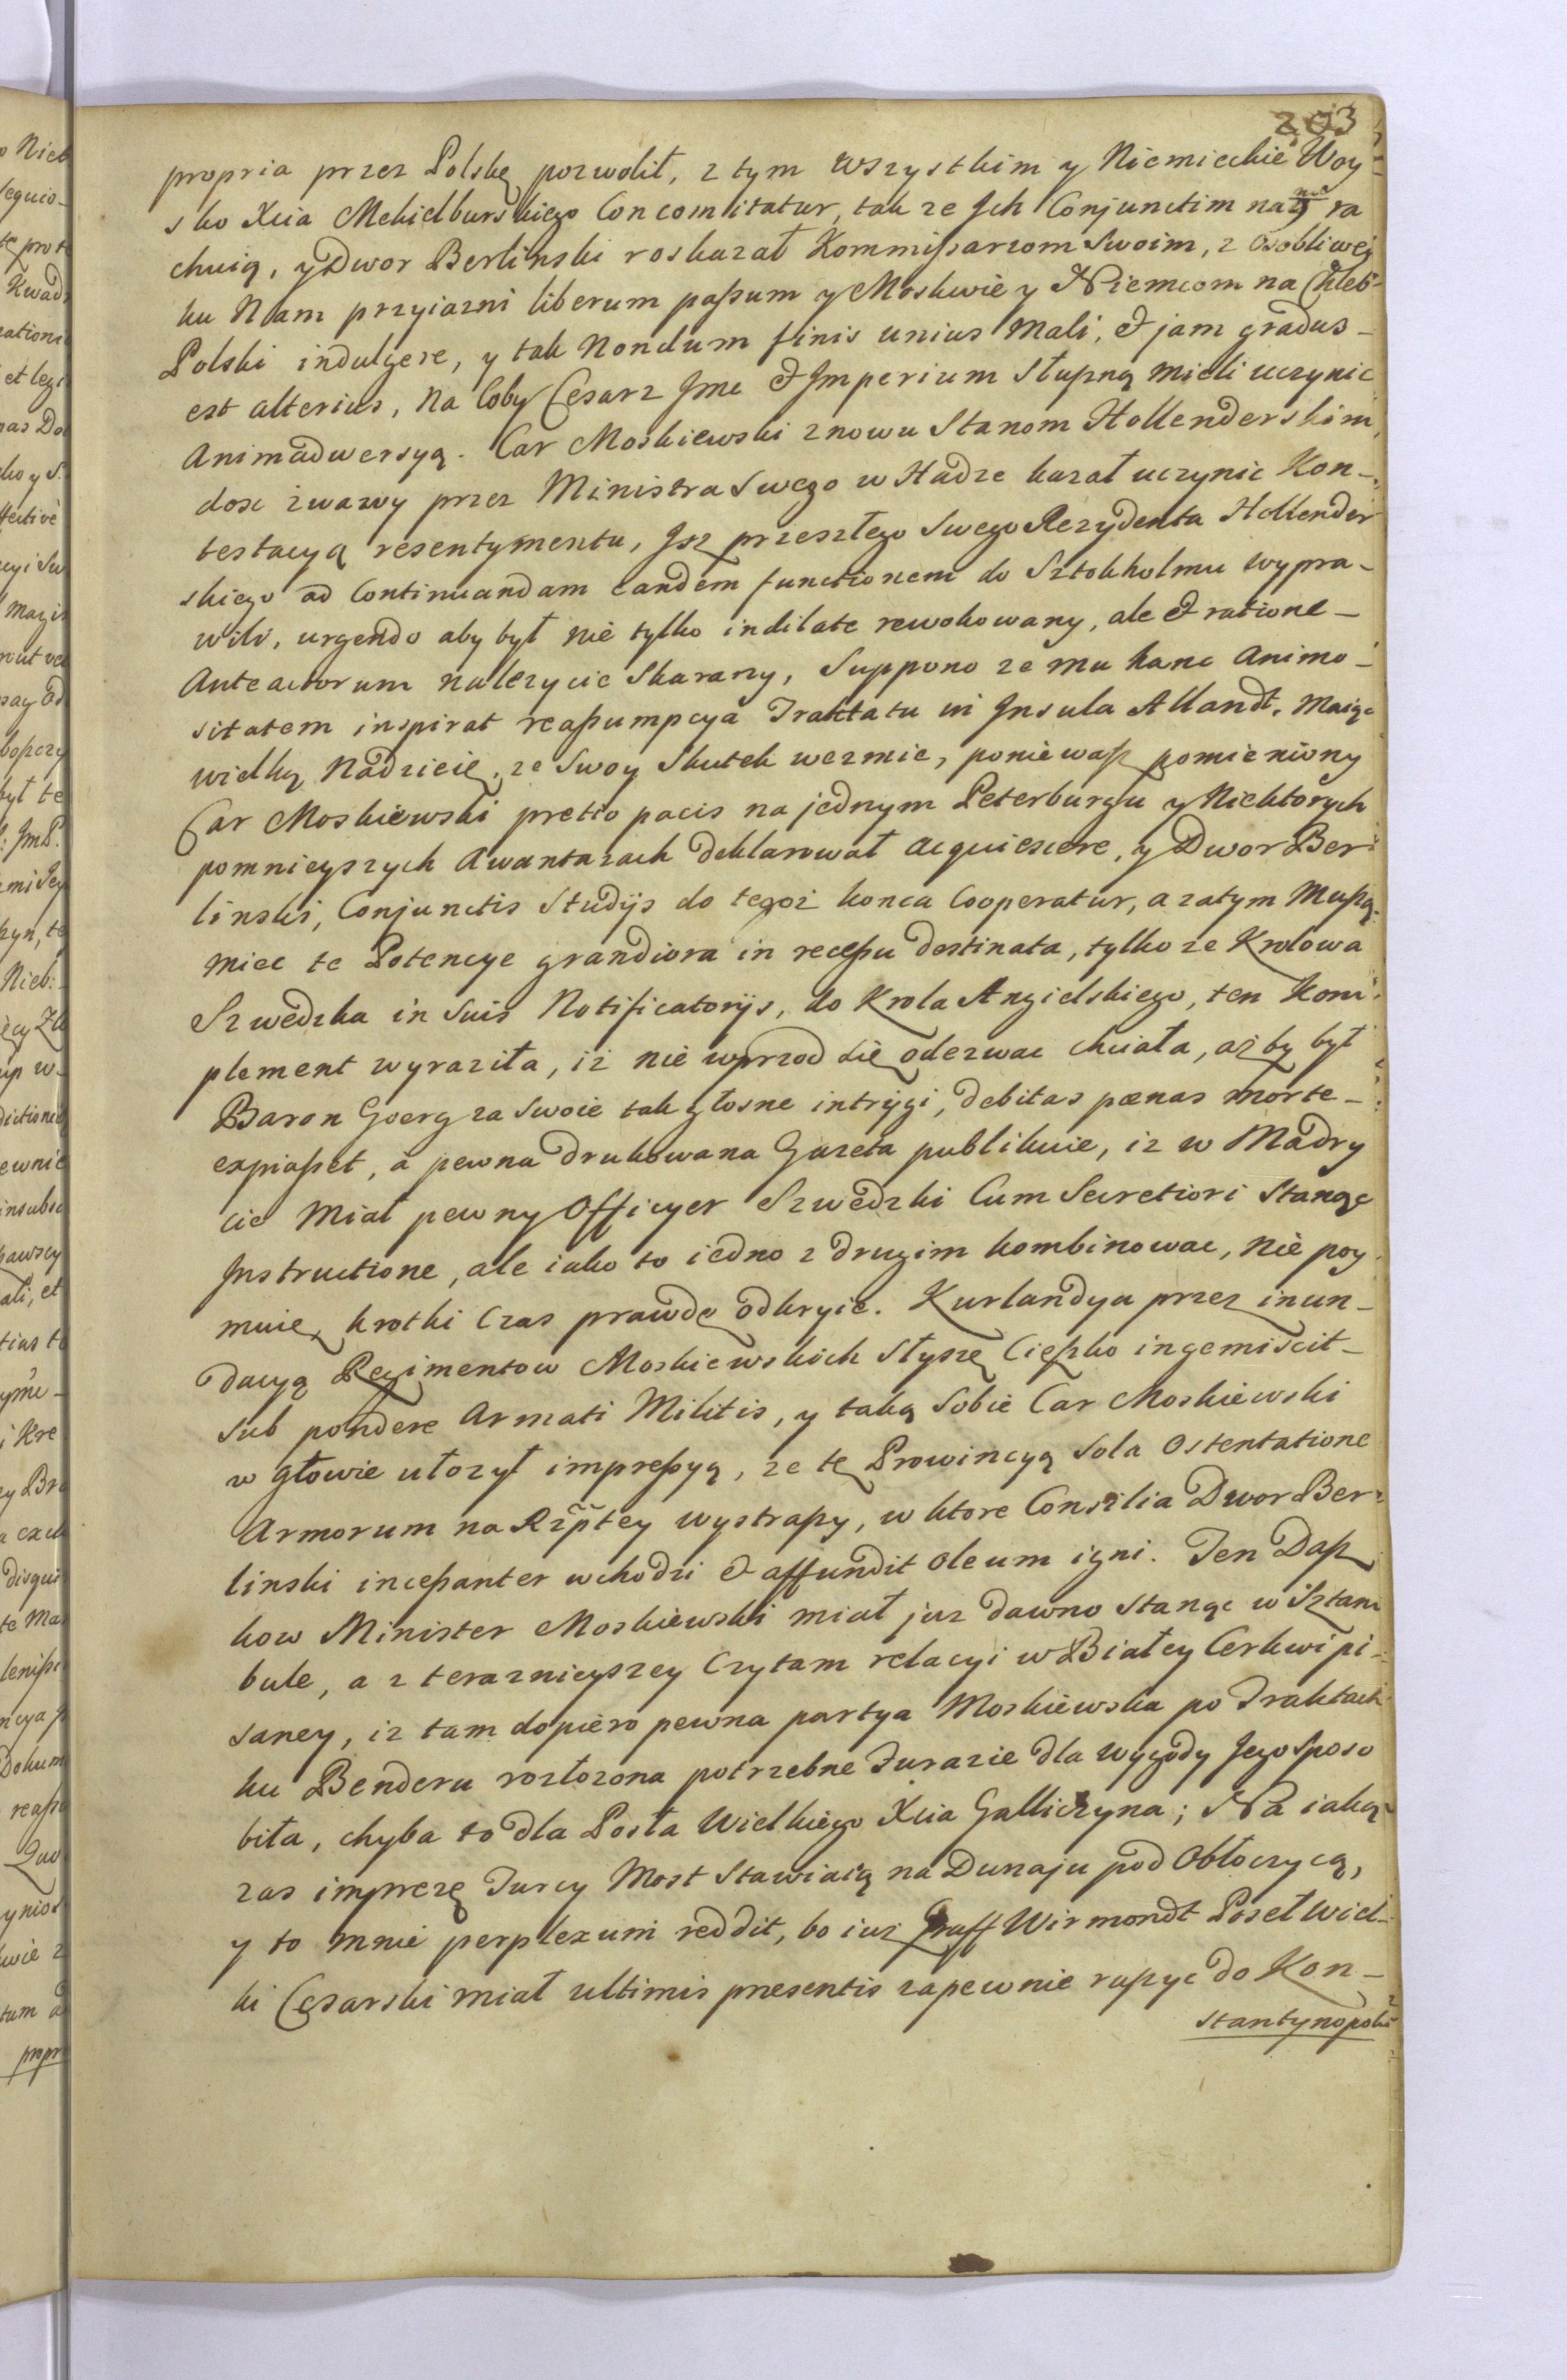 203
propria przez Polskę pozwolił, z tym wszystkim y Niemieckie Woy-
sko Xcia Mekielburskiego Concomitatur, tak ze Jch Conjunctim na ra
chuią, y Dwor Berlinski roskazał Kommißarzom Swoim, z osobliwey
ku Nam przyiazni liberum paßum y Moskwie y Niemcom na Chleb
Polski indulgere, y tak Nondum finis unius Mali, & jam gradus-
est alterius, Na Coby Cesarz Jmc & Jmperium Słußną mieli uczynic
Animadwersyą. Car Moskiewski znowu Stanom Hollenderskim,
dosc zwawy przez Ministra Swego w Hadze kazał uczynic Kon-
testacyą resentymentu, Jsz przeszłego Swego Rezydenta Hollender
skiego ad Continuandam eandem functionem do Sztokholmu wypra-
wili, urgendo aby był nie tylko indilate rewokowany, ale & ratione-
Anteactorum nalezycie Skarany, Suppono ze mu hanc Animo-
sitatem inspirat reaßumpcya Traktatu in Jnsula Allandt. Maiąc
wielką Nadzieię, ze Swoy Skutek wezmie, poniewaß pomieniony
Car Moskiewski pretio pacis na jednym Peterburgu y Niektorych
pomnieyszych Awantazach deklarował acquiescere, y Dwor Ber
linski, Conjunctis Studijs do tegoz konca Cooperatur, a zatym Mußą
miec te Potencye grandiora in receßu destinata, tylko ze Krolowa
Szwedzka in Suis Notificatorijs, do Krola Angielskiego, ten Kom
plement wyraziła, iz nie wprzod się odezwac chciała, aż by był
Baron Goerg za Swoie tak głosne intrygi, debitas pœnas morte-
expiaßet, a pewna drukowana Gazeta publikuie, iz w Madry
cie Miał pewny Officyer Szwedzki Cum Secretiori Stanąc
Jnstructione, ale iako to iedno z drugim kombinowac, nie poy
muię, krotki Czas prawdę odkryie. Kurlandya przez inun-
dacyą Regimentow Moskiewskich Słyszę Cięßko ingemiscit-
sub pondere Armati Militis, y taką Sobie Car Moskiewski
w głowie ułozył impreßyą, ze tę Prowincyą Sola Ostentatione
Armorum na Rzptey wystraßy, w ktore Consilia Dwor Ber
linski inceßanter wchodzi & affundit oleum igni. Ten Daß
kow Minister Moskiewski miał juz dawno stanąc w Sztam
bule, a z teraznieyszey Czytam relacyi w Białey Cerkwi pi-
saney, iz tam dopiero pewna partya Moskiewska po Traktach
ku Benderu rozłozona potrzebne Furazie dla wygody Jego Sposo
biła, chyba to dla Posła Wielkiego Xcia Galliczyna; Na iaką
zas imprezę Turcy Most Stawiaią na Dunaju pod Obłoczycą,
y to mnie perplexum reddit, bo iuz Graff Wirmondt Poseł Wiel-
ki Cesarski miał ultimis præsentis zapewnie rußyc do Kon-
stantynopola